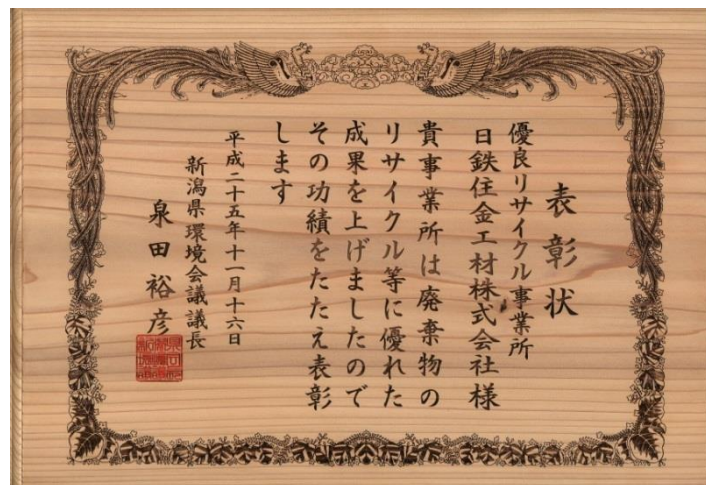 表彰状
優良リサイクル事業所
日鉄住金工材株式会社様
貴事業所は廃棄物の
リサイクル等に優れた
成果を上げましたので
その功績をたたえ表彰
します
平成二十五年十一月十六日
新潟県環境会議議長
泉田裕彦